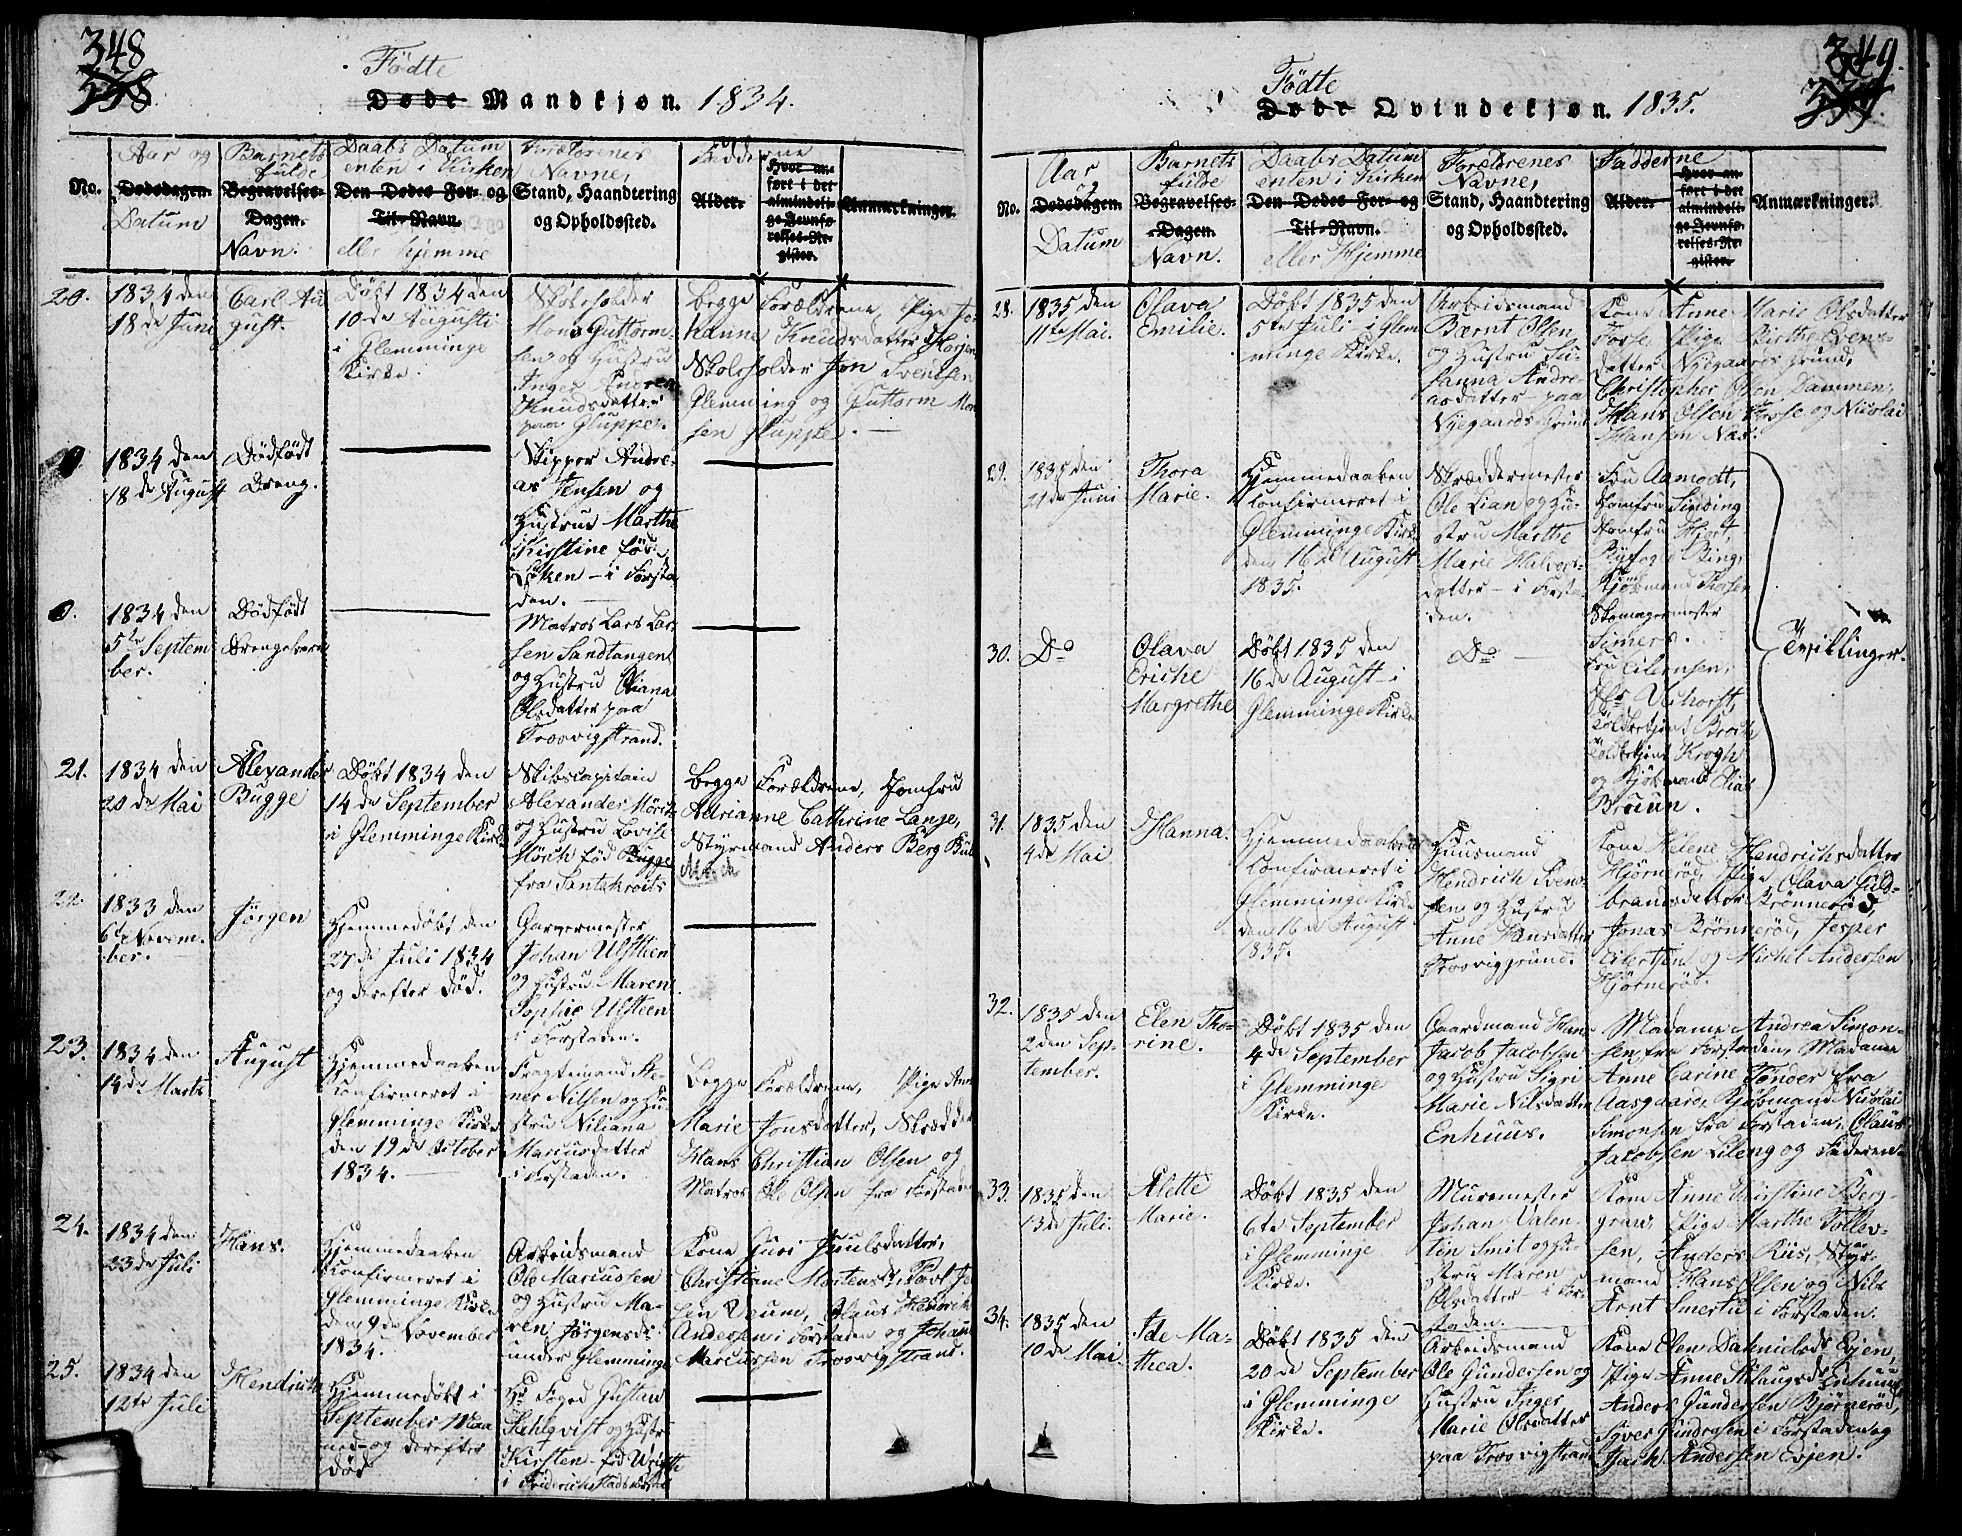 348
338
Fødte
Døde Mandkjøn. 1834.
No.
Aar og
Dødsdagen.
Datum
Barnets
fulde
Begravelses-
Dagen.
Navn.
Daabs Datum
enten i Kirken
Den Dødes For- og
Til-Navn.
eller hjemme
Forældrenes
Navne,
Stand, Haandtering
og Opholdssted.
Fadderne
Alder.
Hvor an-
ført i det
almindeli-
ge Jevnfø-
relses-Re-
gister.
Anmærkninger.
20.
1834 den
18de Juni
Carl Au
gust.
Døbt 1834 den
10de Augusti
i Glemminge
Kirke.
Skoleholder
Mons Guttorm-
sen og Hustru
Inger Andrea
Knudsdatter
paa Gluppe.
Begge Forældrene, Pige Jo-
hanne Knudsdatter
Skoleholder Jon Svendsen
Glemming og Guttorm Mon
sen Gluppe.
0
1834 den
18de August
Dødfødt
Dreng.
Skipper Andre-
as Jensen og
Hustrue Marthe
Kirstine fød
Løken - i Forsta
den.
0.
1834 den
5te Septem
ber.
Dødfødt
Drengebarn
Matros Lars Lar-
sen Sandtangen
og Hustru Oliana
Olsdatter paa
Trosvigstrand.
21.
1834 den
20de Mai
Alexander
Bugge
Døbt 1834 den
14de September
i Glemminge Kirke
Skibscapitain
Alexander Mörch
og Hustru Lovise
Mörch fød Bugge
fra
Begge Forældrene, Jomfru
Adrianne Cathrine Lange,
Styrmand Anders Berg
22.
1833 den
6te Novem-
ber.
Jørgen
Hjemmedøbt den
27de Juli 1834
og derefter død.
Garvermester
Johan Ulsteen
og Hustru Maren
Sophie Ulsteen
i Forstaden.
23.
1834 den
14de Marts
August
Hjemmedaaben
Confirmeret i
Glemminge Kirke
den 19de October
1834.
Fragtemand Ste-
ner Nilsen og Hu-
stru Niliana
Marcusdatter
i Forstaden.
Begge Forældrene, Pige Ann
Marie Jonsdatter, Skrædder
Hans Christian Olsen og
Matros Ole Olsen fra Forstaden
24.
1834 den
23de Juli
Hans.
Hjemmedaaben
Confirmeret i
Glemminge Kirke
den 9de November
1834.
Arbeidsmand
Ole Marcussen
og Hustru Ma-
ren Jørgensdr
under Glemminge
Kone Guri Juulsdatter,
Christiane Mortensdr,
Andersen i Forstaden og Johan
Marcussen Trosvigstrand.
25.
1834 den
12te Juli
Hendrich
Hjemmedøbt i
September Maa
ned og derefter
død
Foged Gustav
og Hustr
Kirsten fød
i Friderichstads
349.
339
Fødte
Døde Qvindekjøn. 1835.
No.
Aar
og
Dødsdagen.
Datum
Barnets
fulde
Begravelses-
Dagen.
Navn.
Daabs Datum
enten i Kirken
Den Dødes For- og
Til-Navn.
eller Hjemme
Forældrenes
Navne,
Stand, Haandtering
og Opholdssted.
Fadderne
Alder.
Hvor an-
ført i det
almindeli-
ge Jevnfø-
relses-Re-
gister.
Anmærkninger.
28.
1835 den
11te Mai.
Olava
Emilie.
Døbt 1835 den
5te Juli i Glem
minge Kirke.
Arbeidsmand
Bærnt Olsen
og Hustru Su-
sanna Andre-
asdatter paa
Nyegaards Grund
Kone Anne Marie Olsdatter
Fosse, Pige Birthe Evens-
datter Nygaards grund,
Christopher Olsen Dammen,
Hans Olsen Fosse og Nicolai
Hansen Næs.
29.
1835 den
21de Juni
Thora
Marie.
Hjemmedaaben
Confirmeret i
Glemminge Kirke
den 16de August
1835.
Skræddermester
Ole Lian og Hu-
stru Marthe
Marie Halvors-
datter - i Forsta
den.
Fru Aamodt,
Jomfru Sinding
Jomfru Hjort,
Byfoged Bing,
Kjøbmand
Skomagermester
30.
Do
Olava
Eriche
Margrethe
Døbt 1835 den
16de August i
Glemminge Kirke
Do
Fru Eilertsen,
Toldbetjent Broch
Toldbetjent Krogh
og Kjøbmand Elias
Bruun.
Tvillinger.
31.
1835 den
4de Mai
Hanna.
Hjemmedaaben
Confirmeret i
Glemminge Kirke
den 16de August
1835.
Huusmand
Hendrich Svend-
sen og Hustru
Anne Hansdatter
Trosviggrund.
Kone Helene Hendrichsdatter
Hjørnerød, Pige Olava Guld-
brandsdatter Brønnerød,
Jonas Brønnerød, Jesper
Eilertsen og Michel Andersen
Hjørnerød.
32.
1835 den
2den Sep-
tember.
Elen Tho-
rine.
Døbt 1835 den
4de September
i Glemminge
Kirke.
Gaardmand Hans
Jacob Jacobsen
og Hustru Sigri
Marie Nilsdatter
Enhuus.
Madame Andrea Simon-
sen fra Forstaden, Madame
Anne Carine Tønder fra
Aasgaard, Kjøbmand Nicolai
Simonsen fra Forstaden, Olaus
Jacobsen Lileng og Faderen.
33.
1835 den
13de Juli.
Alette
Marie.
Døbt 1835 den
6te September
i Glemminge
Kirke.
Murmester
Johan Valen-
tin Smit og Hu-
stru Maren
Olsdatter - i For
staden.
Kone Anne Kirstine Berg-
grav, Pige Marthe Tollev-
sen, Anders Riis, Styr-
mand Hans Olsen og Nils
Arnt Smertu i Forstaden.
34.
1835 den
10de Mai.
Ide Ma-
thea.
Døbt 1835 den
20de September
i Glemminge
Kirke.
Arbeidsmand
Ole Gundersen og
Hustru Inger
Marie Olsdatter
paa Trosvigstrand
Kone Elen Danielsdr Evjen,
Pige Anne Aslaugsdr Enhuus,
Anders Gundersen Bjørnerød,
Syver Gundersen i Forstaden og
Isach Andersen Evjen.